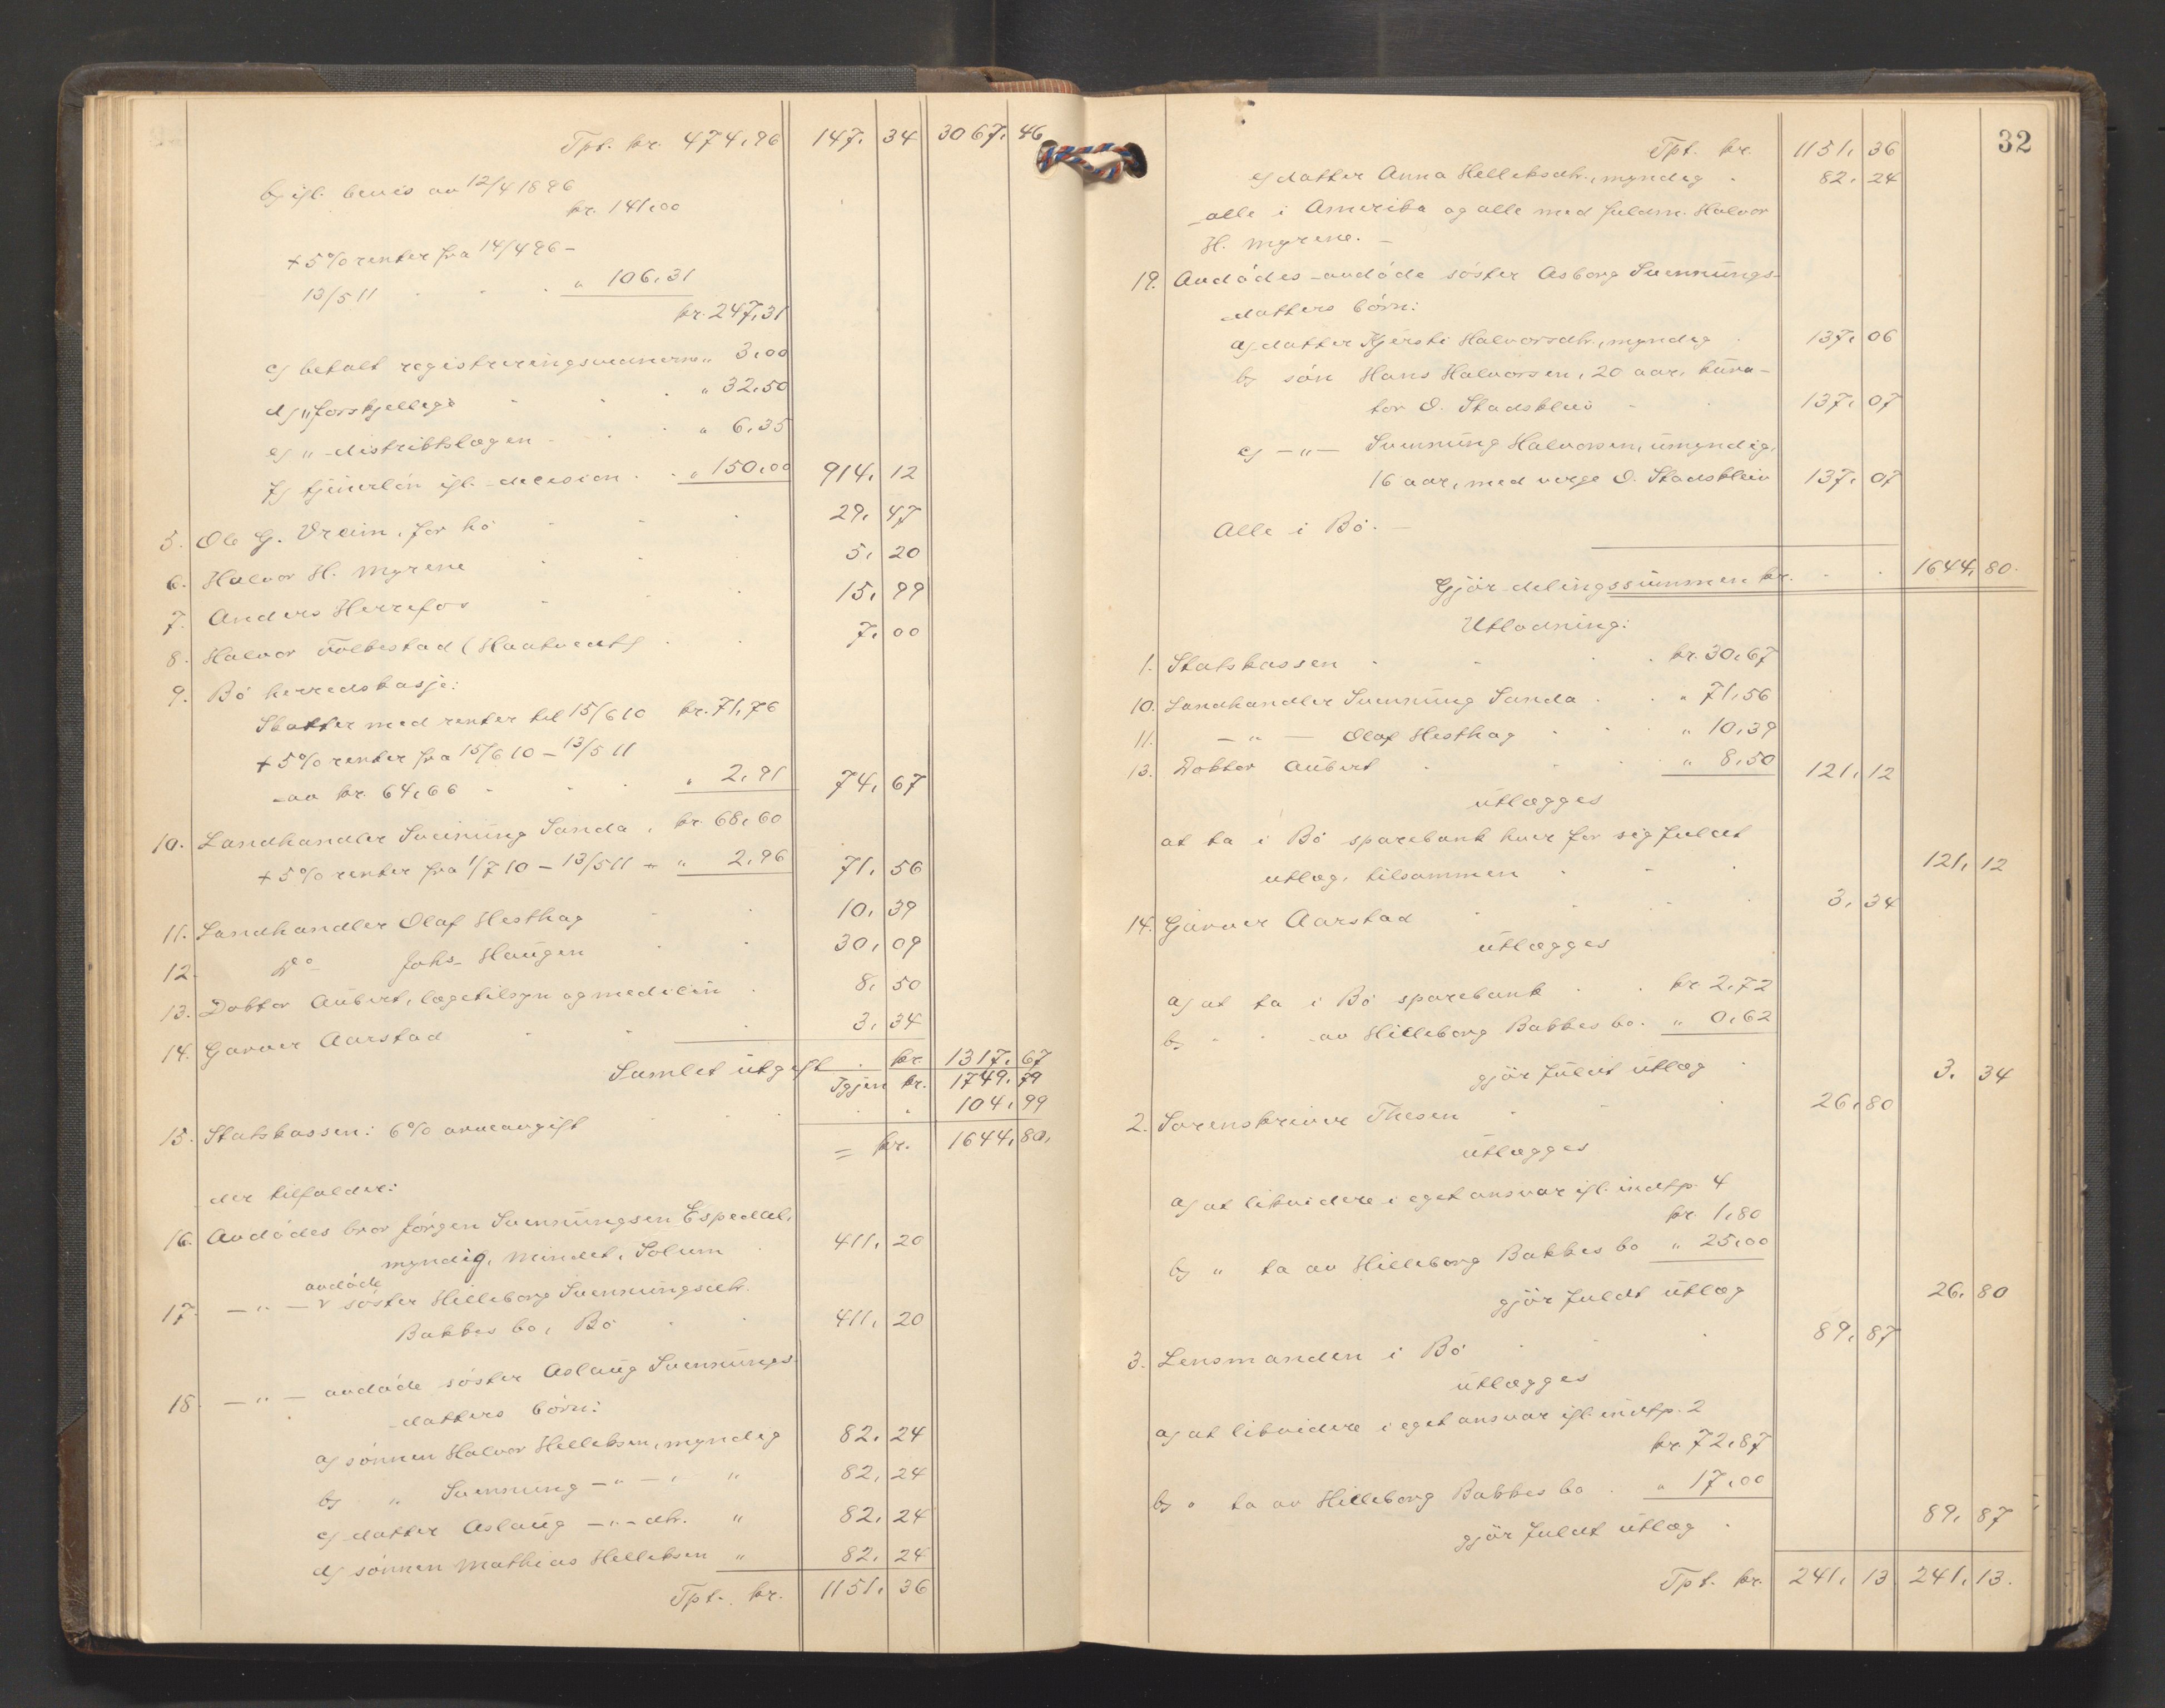 Tpt. kr. 474,96 147,34 3067,46
b) ifl. bevis av 12/4 1896
kr. 141,00
+ 5% renter fra 14/4 96 –
13/5 11 . . . " 106,31
kr. 247,31
c) betalt registreringsvidnerne " 3,00
d) " forskjellige . . . " 32,50
e) " distriktslægen . . . " 6,35
f) tjenerløn ifl. decision . . " 150,00 914,12
5. Ole G. Vreim, for hø . . . 29,47
6. Halvor H. Myrene . . . 5,20
7. Anders Herrefos . . . 15,99
8. Halvor Folkestad (Haatveit) . . 7,00
9. Bø herredskasse:
Skatter med renter til 15/6 10 kr. 71,76
+ 5% renter fra 15/6 10 – 13/5 11
av kr. 64,66 . . . " 2,91 74,67
10. Landhandler Sveinung Sanda . kr. 68,60
+ 5% renter fra 1/7 10 – 13/5 11 – " 2,96 71,56
11. Landhandler Olaf Hesthag . . 10,39
12. Do Johs. Haugen . . 30,09
13. Doktor Aubert, lægetilsyn og medicin . 8,50
14. Garver Aarstad . . . 3,34
Samlet utgift . kr. 1317,67
Igjen kr. 1749,79
15. Statskassen: 6% arveavgift . . . 104,99
= kr. 1644,80.
der tilfalder:
16. Avdødes bror Jørgen Svennungsen Espedal,
myndig, Mindet, Solum . 411,20
avdøde
17. – " – v søster Hilleborg Svennungsdtr.
Bakkes bo, Bø . . 411,20
18. – " – avdøde søster Aslaug Svennungs-
datters børn:
a) sønnen Halvor Helleksen, myndig 82,24
b) " Svennung – " – , " 82,24
c) datter Aslaug – " – dtr. " 82,24
d) sønnen Mathias Helleksen " 82,24
Tpt. kr. 1151,36
32
Tpt. kr. 1151,36
e) datter Anna Helleksdtr., myndig . 82,24
alle i Amerika og alle med fuldm. Halvor
H. Myrene. –
19. Avdødes avdøde søster Asborg Svennungs-
datters børn:
a) datter Kjersti Halvorsdtr., myndig . 137,06
b) søn Hans Halvorsen, 20 aar, kura-
tor O. Stadskleiv . . 137,07
c) – " – Svennung Halvorsen, umyndig,
16 aar, med verge O. Stadskleiv 137,07
Alle i Bø. –
Gjør delingssummen kr. . . 1644,80.
Utlodning:
1. Statskassen . . . . kr. 30,67
10. Landhandler Svennung Sanda . . " 71,56
11. – " – Olaf Hesthag . . " 10,39
13. Doktor Aubert . . . " 8,50 121,12
utlægges
at ta i Bø sparebank hver for sig fuldt
utlæg, tilsammen . . . 121,12
14. Garver Aarstad . . . . 3,34
utlægges
a) at ta i Bø sparebank . . kr. 2,72
b) " " av Hilleborg Bakkes bo. " 0,62
gjør fuldt utlæg . 3,34
2. Sorenskriver Thesen . . . 26,80
utlægges
a) at likvidere i eget ansvar ifl. indtp. 4
kr. 1,80
b) " ta av Hilleborg Bakkes bo " 25,00
gjør fuldt utlæg 26,80
3. Lensmanden i Bø . . . 89,87
utlægges
a) at likvidere i eget ansvar ifl. indtp. 2
kr. 72,87
b) " ta av Hilleborg Bakkes bo . " 17,00
gjør fuldt utlæg . 89,87
Tpt. kr. 241,13 241,13.